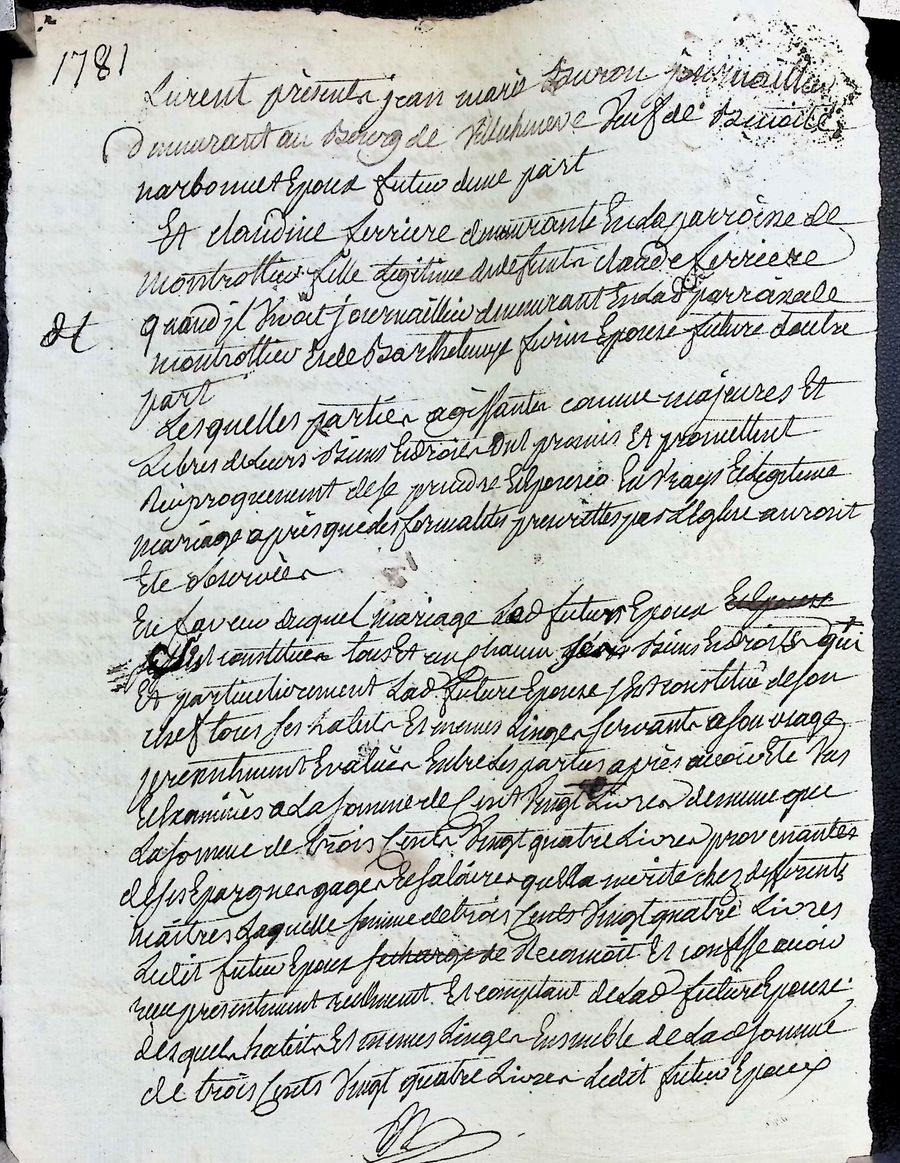 1781
Furent présents jean marie journaillier
demeurant au Bourg de Villecheneve Veuf de Benoite
narbonnet Epoux futur dune part
Et claudine ferriere demeurante En la parroisse de
montrottier fille Legitime de defunts claude ferriere
quand jl Vivoit journaillier demeurant En lad parroisse de
montrottier Et de Barthelemye Epouse future dautre
part
Lesquelles parties agissantes comme majeures Et
Libres de Leurs Biens Et droits ont promis Et promettent
Reciproquement de se prendre En Vray Et Legitime
mariage apres que les formalites prescrittes par L'Eglise auront
Ete observées
En faveur duquel mariage Lesd futurs Epoux
constitués tous Et un chacun Biens Et droits
Et particulierement Lad. future Epouse sest constitué de son
chef tous ses habits Et menues Linges servants a son usage
presentement Evalués Entre Les parties après avoir Eté Vus
Et Examinés a La somme de Cent Vingt Livres de meme que
La somme de trois Cents Vingt quatre Livres provenantes
de ses Epargnes gages Et salaires quelle a merité chez differents
maitres Laquelle somme de trois Cents Vingt quatre Livres
Ledit futur Epoux Reconnoit Et confesse avoir
recu presentement reellement Et comptant de Lad future Epouse
desquels habits Et menues Linges Ensemble de Lad somme
de trois Cents Vingt quatre Livres Ledit futur Epoux